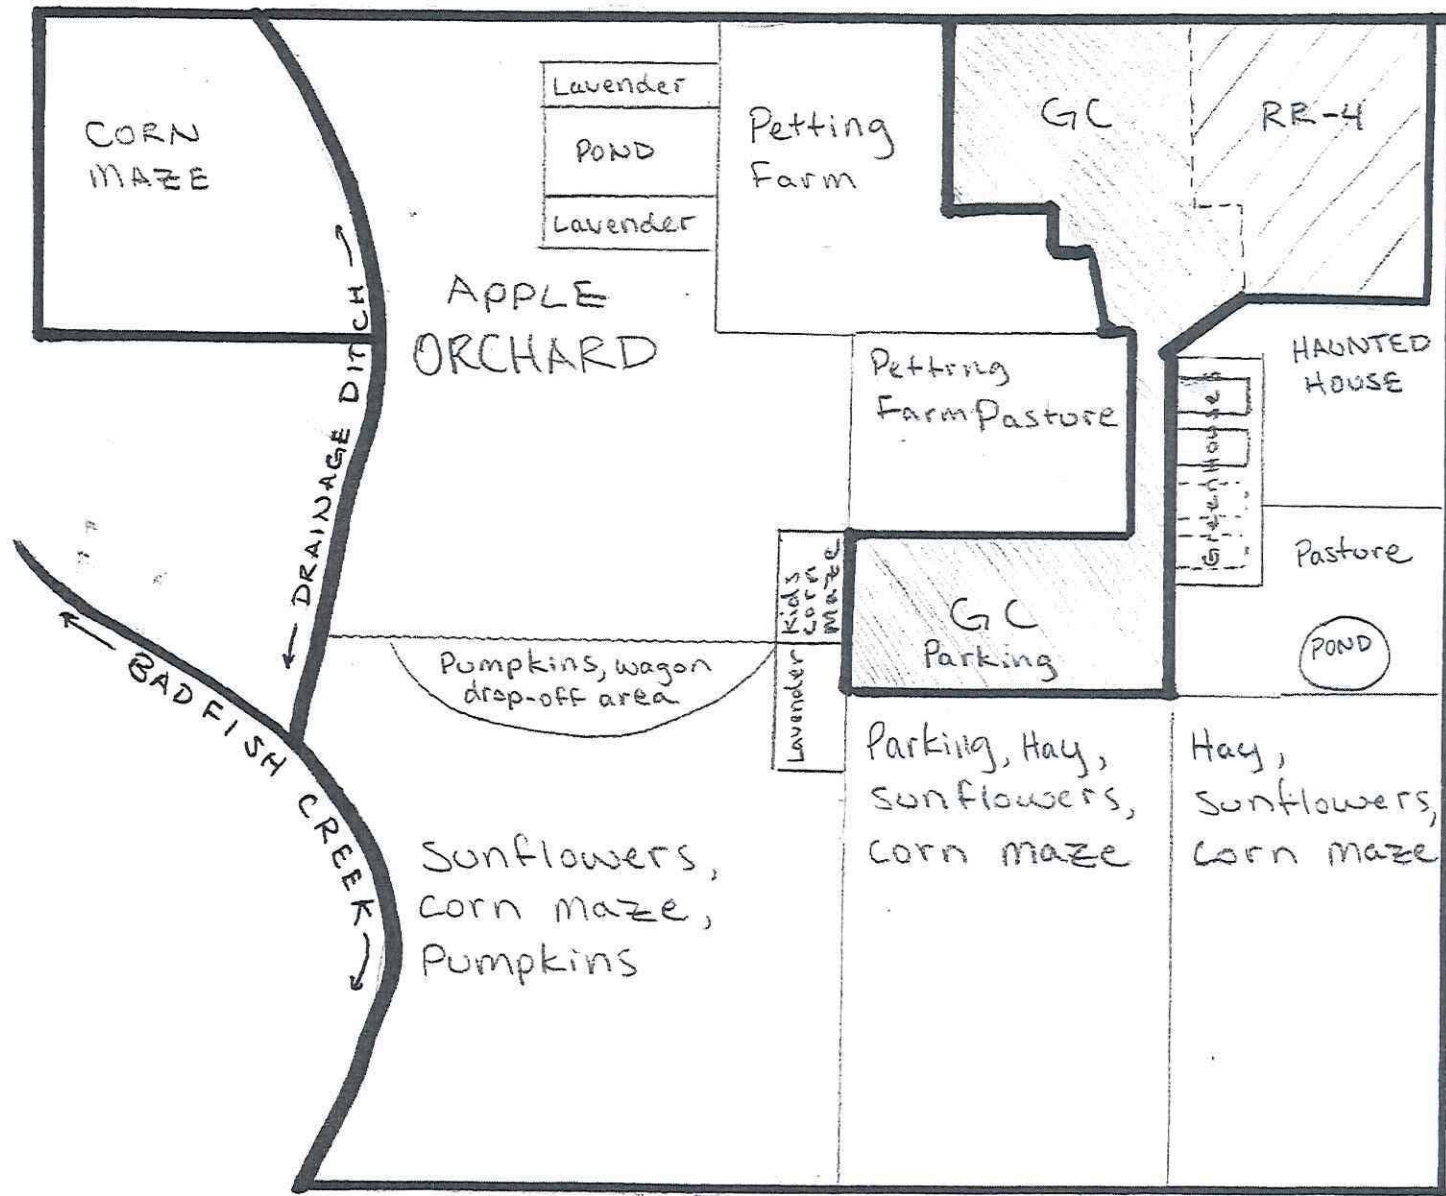 CORN
MAZE
Lavender
POND
Lavender
Petting
Farm
GC
RR-4
APPLE
ORCHARD
← DRAINAGE DITCH →
Petting
Farm Pasture
HAUNTED
HOUSE
GreenHouses
Pasture
POND
Kids
Corn
Maze
GC
Parking
Lavender
Pumpkins, wagon
drop-off area
← BADFISH CREEK →
Parking, Hay,
Sunflowers,
Corn maze
Hay,
Sunflowers,
Corn maze
Sunflowers,
Corn maze,
Pumpkins